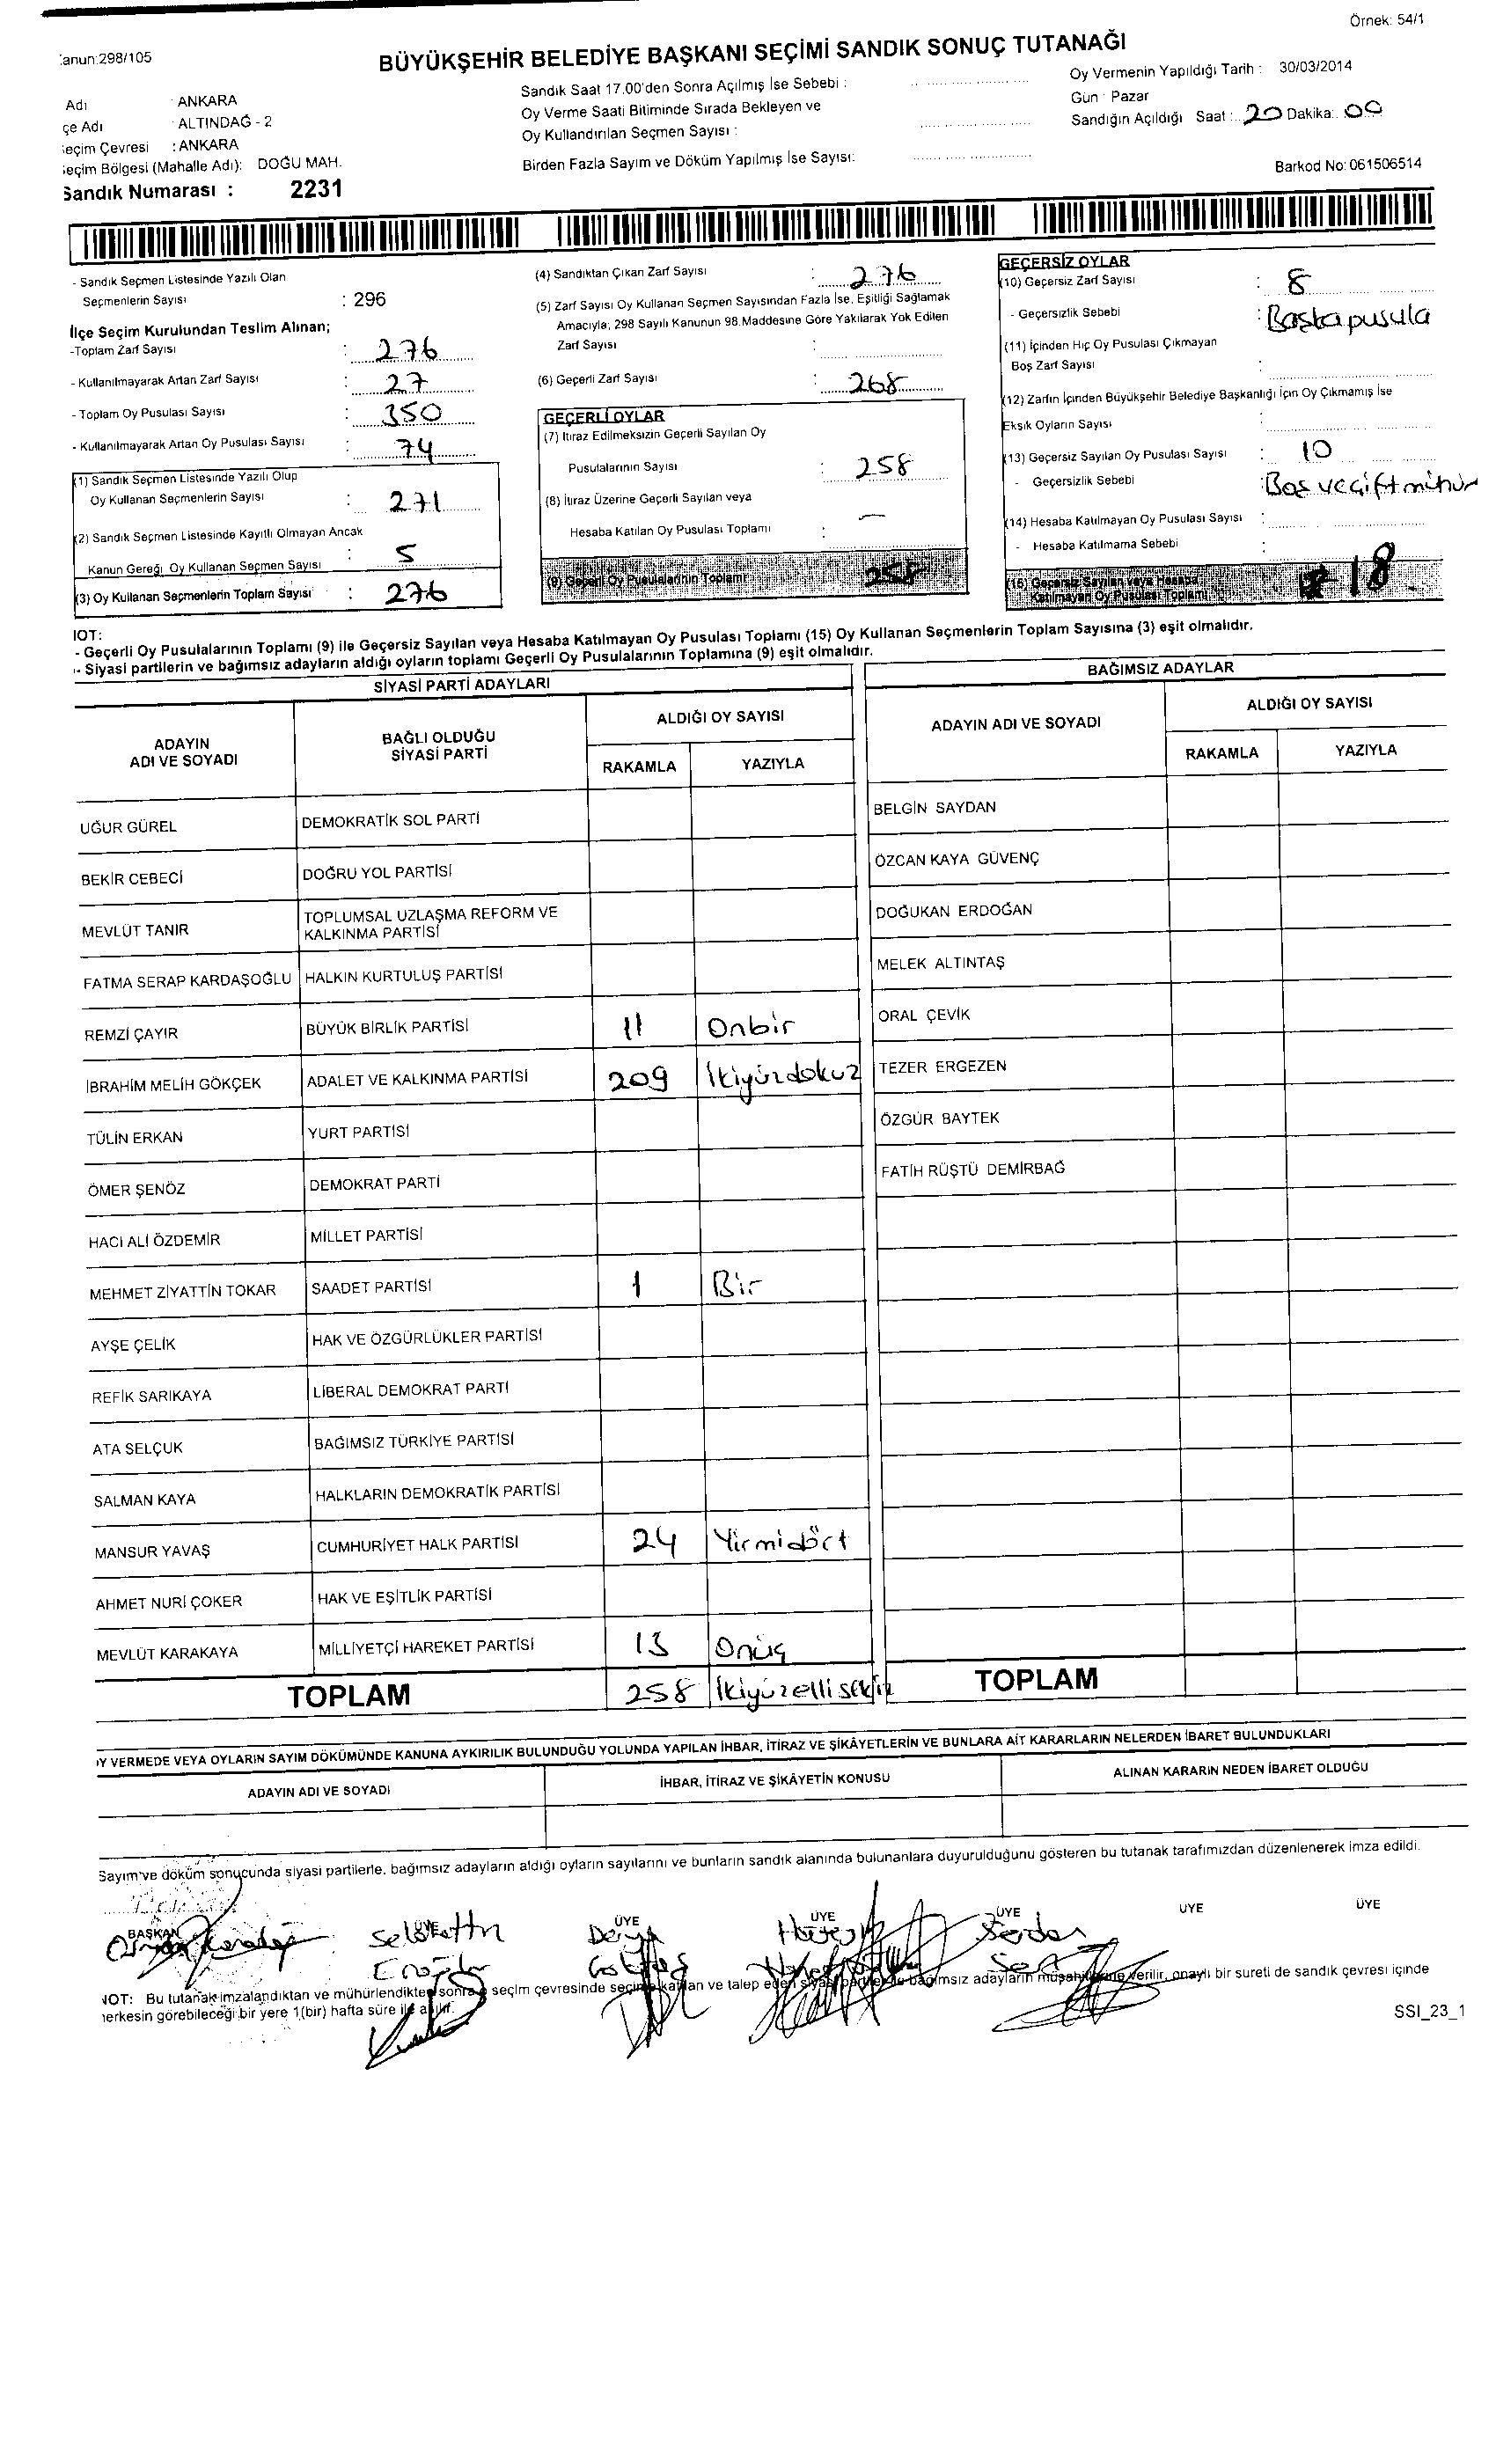 Örnek: 54/1
anun:298/105
BÜYÜKŞEHİR BELEDİYE BAŞKANI SEÇİMİ SANDIK SONUÇ TUTANAĞI
Adı : ANKARA
çe Adı : ALTINDAĞ - 2
eçim Çevresi : ANKARA
eçim Bölgesi (Mahalle Adı): DOĞU MAH.
Sandık Numarası : 2231
Sandık Saat 17.00'den Sonra Açılmış İse Sebebi :
Oy Verme Saati Bitiminde Sırada Bekleyen ve
Oy Kullandırılan Seçmen Sayısı :
Birden Fazla Sayım ve Döküm Yapılmış İse Sayısı:
Oy Vermenin Yapıldığı Tarih : 30/03/2014
Gün : Pazar
Sandığın Açıldığı Saat : 20 Dakika: 00
Barkod No: 061506514
- Sandık Seçmen Listesinde Yazılı Olan
Seçmenlerin Sayısı : 296
İlçe Seçim Kurulundan Teslim Alınan;
-Toplam Zarf Sayısı : 276
- Kullanılmayarak Artan Zarf Sayısı : 27
- Toplam Oy Pusulası Sayısı : 350
- Kullanılmayarak Artan Oy Pusulası Sayısı : 74
(1) Sandık Seçmen Listesinde Yazılı Olup
Oy Kullanan Seçmenlerin Sayısı : 271
(2) Sandık Seçmen Listesinde Kayıtlı Olmayan Ancak
Kanun Gereği Oy Kullanan Seçmen Sayısı : 5
(3) Oy Kullanan Seçmenlerin Toplam Sayısı : 276
(4) Sandıktan Çıkan Zarf Sayısı : 276
(5) Zarf Sayısı Oy Kullanan Seçmen Sayısından Fazla İse, Eşitliği Sağlamak
Amacıyla; 298 Sayılı Kanunun 98.Maddesine Göre Yakılarak Yok Edilen
Zarf Sayısı :
(6) Geçerli Zarf Sayısı : 268
GEÇERLİ OYLAR
(7) İtiraz Edilmeksizin Geçerli Sayılan Oy
Pusulalarının Sayısı : 258
(8) İtiraz Üzerine Geçerli Sayılan veya
Hesaba Katılan Oy Pusulası Toplamı : —
(9) Geçerli Oy Pusulalarının Toplamı 258
GEÇERSİZ OYLAR
(10) Geçersiz Zarf Sayısı : 8
- Geçersizlik Sebebi : Başka pusula
(11) İçinden Hiç Oy Pusulası Çıkmayan
Boş Zarf Sayısı :
(12) Zarfın İçinden Büyükşehir Belediye Başkanlığı İçin Oy Çıkmamış İse
Eksik Oyların Sayısı :
(13) Geçersiz Sayılan Oy Pusulası Sayısı : 10
- Geçersizlik Sebebi : Boş ve çift mühür
(14) Hesaba Katılmayan Oy Pusulası Sayısı :
- Hesaba Katılmama Sebebi :
(15) Geçersiz Sayılan veya Hesaba
Katılmayan Oy Pusulası Toplamı 18
IOT:
- Geçerli Oy Pusulalarının Toplamı (9) ile Geçersiz Sayılan veya Hesaba Katılmayan Oy Pusulası Toplamı (15) Oy Kullanan Seçmenlerin Toplam Sayısına (3) eşit olmalıdır.
- Siyasi partilerin ve bağımsız adayların aldığı oyların toplamı Geçerli Oy Pusulalarının Toplamına (9) eşit olmalıdır.
SİYASİ PARTİ ADAYLARI
ADAYIN ADI VE SOYADI
BAĞLI OLDUĞU SİYASİ PARTİ
ALDIĞI OY SAYISI
RAKAMLA YAZIYLA
UĞUR GÜREL DEMOKRATİK SOL PARTİ
BEKİR CEBECİ DOĞRU YOL PARTİSİ
MEVLÜT TANIR TOPLUMSAL UZLAŞMA REFORM VE KALKINMA PARTİSİ
FATMA SERAP KARDAŞOĞLU HALKIN KURTULUŞ PARTİSİ
REMZİ ÇAYIR BÜYÜK BİRLİK PARTİSİ 11 Onbir
İBRAHİM MELİH GÖKÇEK ADALET VE KALKINMA PARTİSİ 209 İkiyüzdokuz
TÜLİN ERKAN YURT PARTİSİ
ÖMER ŞENÖZ DEMOKRAT PARTİ
HACI ALİ ÖZDEMİR MİLLET PARTİSİ
MEHMET ZİYATTİN TOKAR SAADET PARTİSİ 1 Bir
AYŞE ÇELİK HAK VE ÖZGÜRLÜKLER PARTİSİ
REFİK SARIKAYA LİBERAL DEMOKRAT PARTİ
ATA SELÇUK BAĞIMSIZ TÜRKİYE PARTİSİ
SALMAN KAYA HALKLARIN DEMOKRATİK PARTİSİ
MANSUR YAVAŞ CUMHURİYET HALK PARTİSİ 24 Yirmidört
AHMET NURİ ÇOKER HAK VE EŞİTLİK PARTİSİ
MEVLÜT KARAKAYA MİLLİYETÇİ HAREKET PARTİSİ 13 Onüç
TOPLAM 258 İkiyüzellisekiz
BAĞIMSIZ ADAYLAR
ADAYIN ADI VE SOYADI
ALDIĞI OY SAYISI
RAKAMLA YAZIYLA
BELGİN SAYDAN
ÖZCAN KAYA GÜVENÇ
DOĞUKAN ERDOĞAN
MELEK ALTINTAŞ
ORAL ÇEVİK
TEZER ERGEZEN
ÖZGÜR BAYTEK
FATİH RÜŞTÜ DEMİRBAĞ
TOPLAM
OY VERMEDE VEYA OYLARIN SAYIM DÖKÜMÜNDE KANUNA AYKIRILIK BULUNDUĞU YOLUNDA YAPILAN İHBAR, İTİRAZ VE ŞİKÂYETLERİN VE BUNLARA AİT KARARLARIN NELERDEN İBARET BULUNDUKLARI
ADAYIN ADI VE SOYADI
İHBAR, İTİRAZ VE ŞİKÂYETİN KONUSU
ALINAN KARARIN NEDEN İBARET OLDUĞU
Sayım ve döküm sonucunda siyasi partilerle, bağımsız adayların aldığı oyların sayılarını ve bunların sandık alanında bulunanlara duyurulduğunu gösteren bu tutanak tarafımızdan düzenlenerek imza edildi.
BAŞKAN ÜYE ÜYE ÜYE ÜYE ÜYE ÜYE
Selahattin Derya Serdar
NOT: Bu tutanak imzalandıktan ve mühürlendikten sonra seçim çevresinde seçime katılan ve talep eden siyasi partiler ile bağımsız adayların müşahitlerine verilir, onaylı bir sureti de sandık çevresi içinde
herkesin görebileceği bir yere 1(bir) hafta süre ile asılır.
SSI_23_1